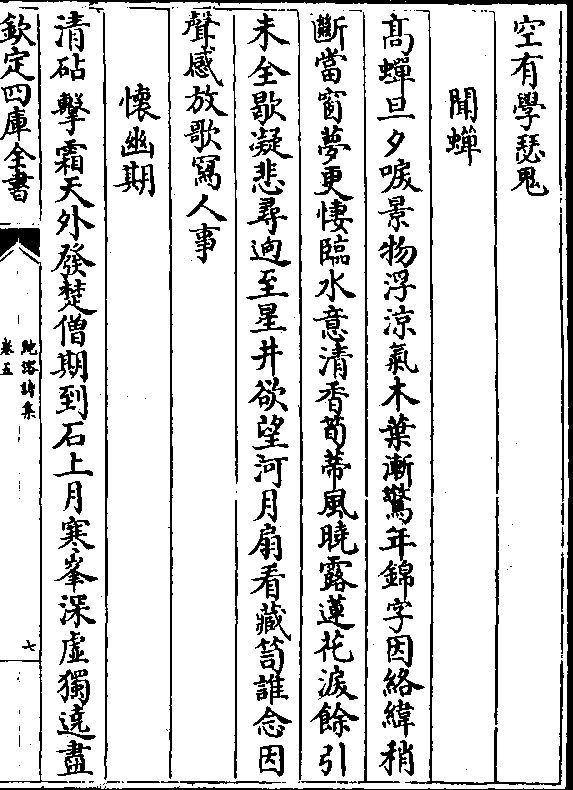 空有學瑟鬼
聞蟬
髙蟬旦夕唳景物浮涼氣木葉漸驚年錦字因絡緯稍
斷當窗夢更悽臨水意清香荀蔕風曉露蓮花淚餘引
未全歇凝悲尋逈至星井欲望河月扇看藏笥誰念因
聲感放歌寫人事
懷幽期
清砧擊霜天外發楚僧期到石上月寒峯深虛獨遶盡
欽定四庫全書
鮑溶詩集
卷五
七